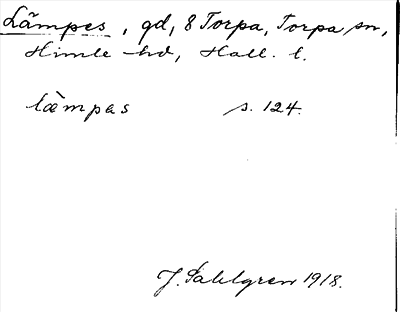 Lämpes, gd, 8 Torpa, Torpa sn,
Himle hd, Hall. l.
læ̀mpas s. 124.
J. Sahlgren 1918.